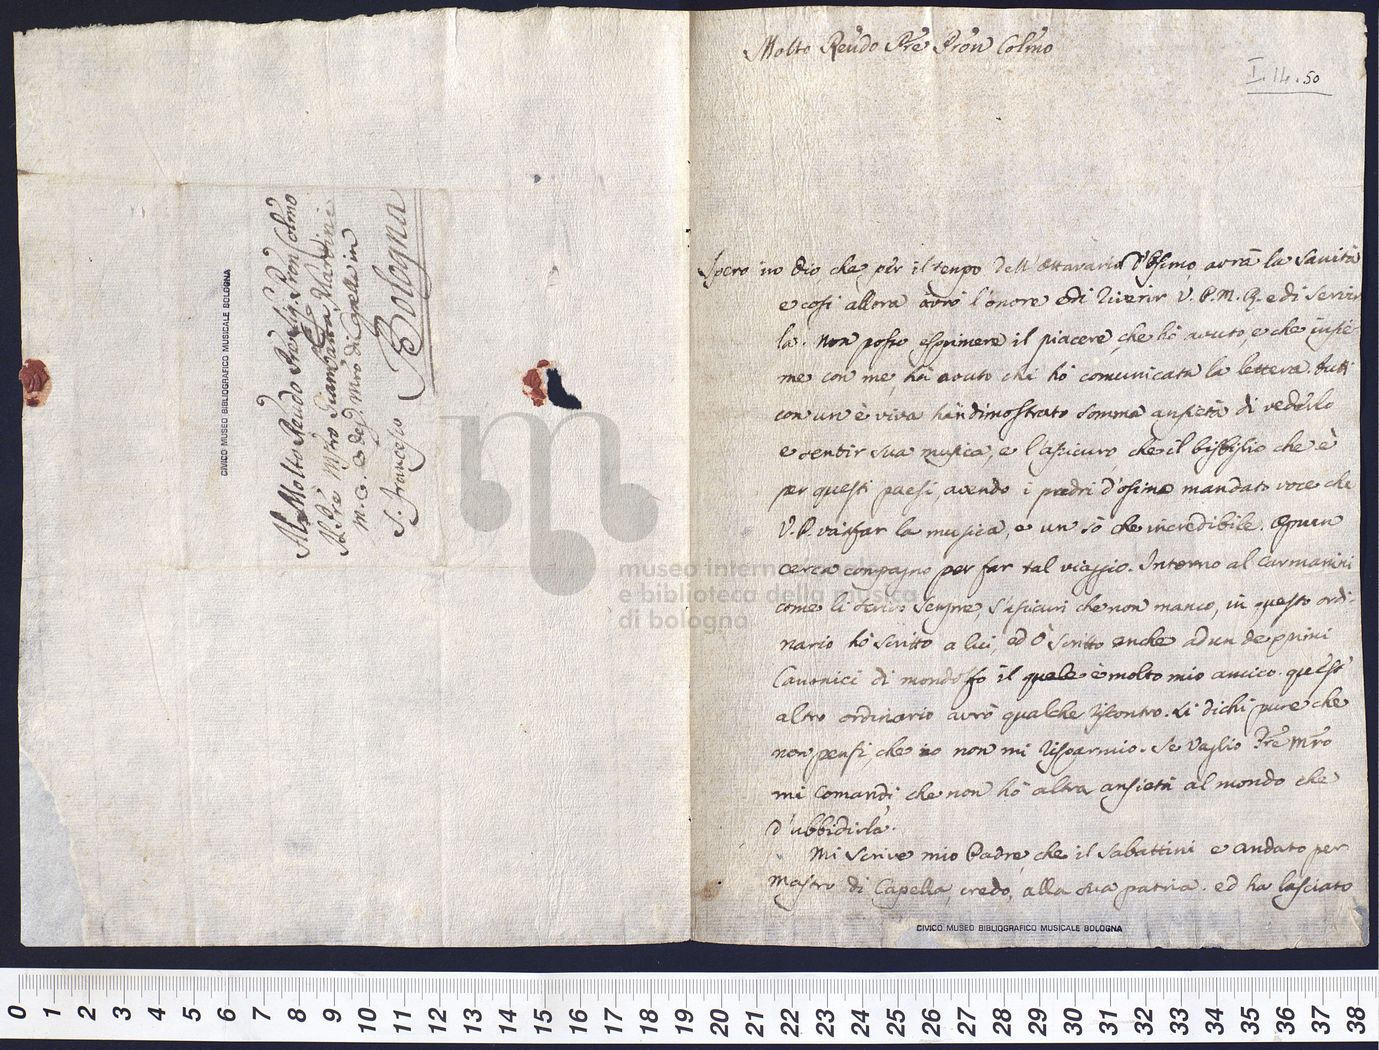 Al Molto Reudo Pre Sig. Pron Colmo
Il Pre Mro Giambatta Martini
M. C. e deg. Mro di Capella in
S. Francesco Bologna
CIVICO MUSEO BIBLIOGRAFICO MUSICALE BOLOGNA
Molto Reudo Pre Pron Colmo
I. 14. 50
Spero in Dio che per il tempo dell' Ottavario d'Osimo avrà la sanità
e così allora avrò l'onore di riverir V. P. M. R. e di servir
la. Non posso esprimere il piacere che hò avuto, e che insie-
me con me hà avuto chi hò comunicata la lettera. tutti
con un è viva hàn dimostrato somma ansietà di vederlo
e sentir sua musica, e l'assicuro, che il bisbiglio che è
per questi paesi, avendo i padri d'Osimo mandato voce che
V. P. và à far la musica, e un sò che incredibile. Ognun
cerca compagno per far tal viaggio. Intorno al Carmanini
come li scrivo sempre, s'assicuri che non manco, in questo ordi-
nario hò scritto a lui, ed ò scritto anche ad un de primi
Canonici di Mondolfo il quale è molto mio amico. quest'
altro ordinario avrò qualche riscontro. Li dichi pure che
non pensi, che io non mi risparmio. Se vaglio Pre Mro
mi comandi che non hò altra ansietà al mondo che
d'ubbidirla.
Mi scrive mio Padre che il Sabattini e andato per
Mastro di Capella, credo, alla sua patria. ed ha lasciato
CIVICO MUSEO BIBLIOGRAFICO MUSICALE BOLOGNA
museo internazionale
e biblioteca della musica
di bologna
0 1 2 3 4 5 6 7 8 9 10 11 12 13 14 15 16 17 18 19 20 21 22 23 24 25 26 27 28 29 30 31 32 33 34 35 36 37 38